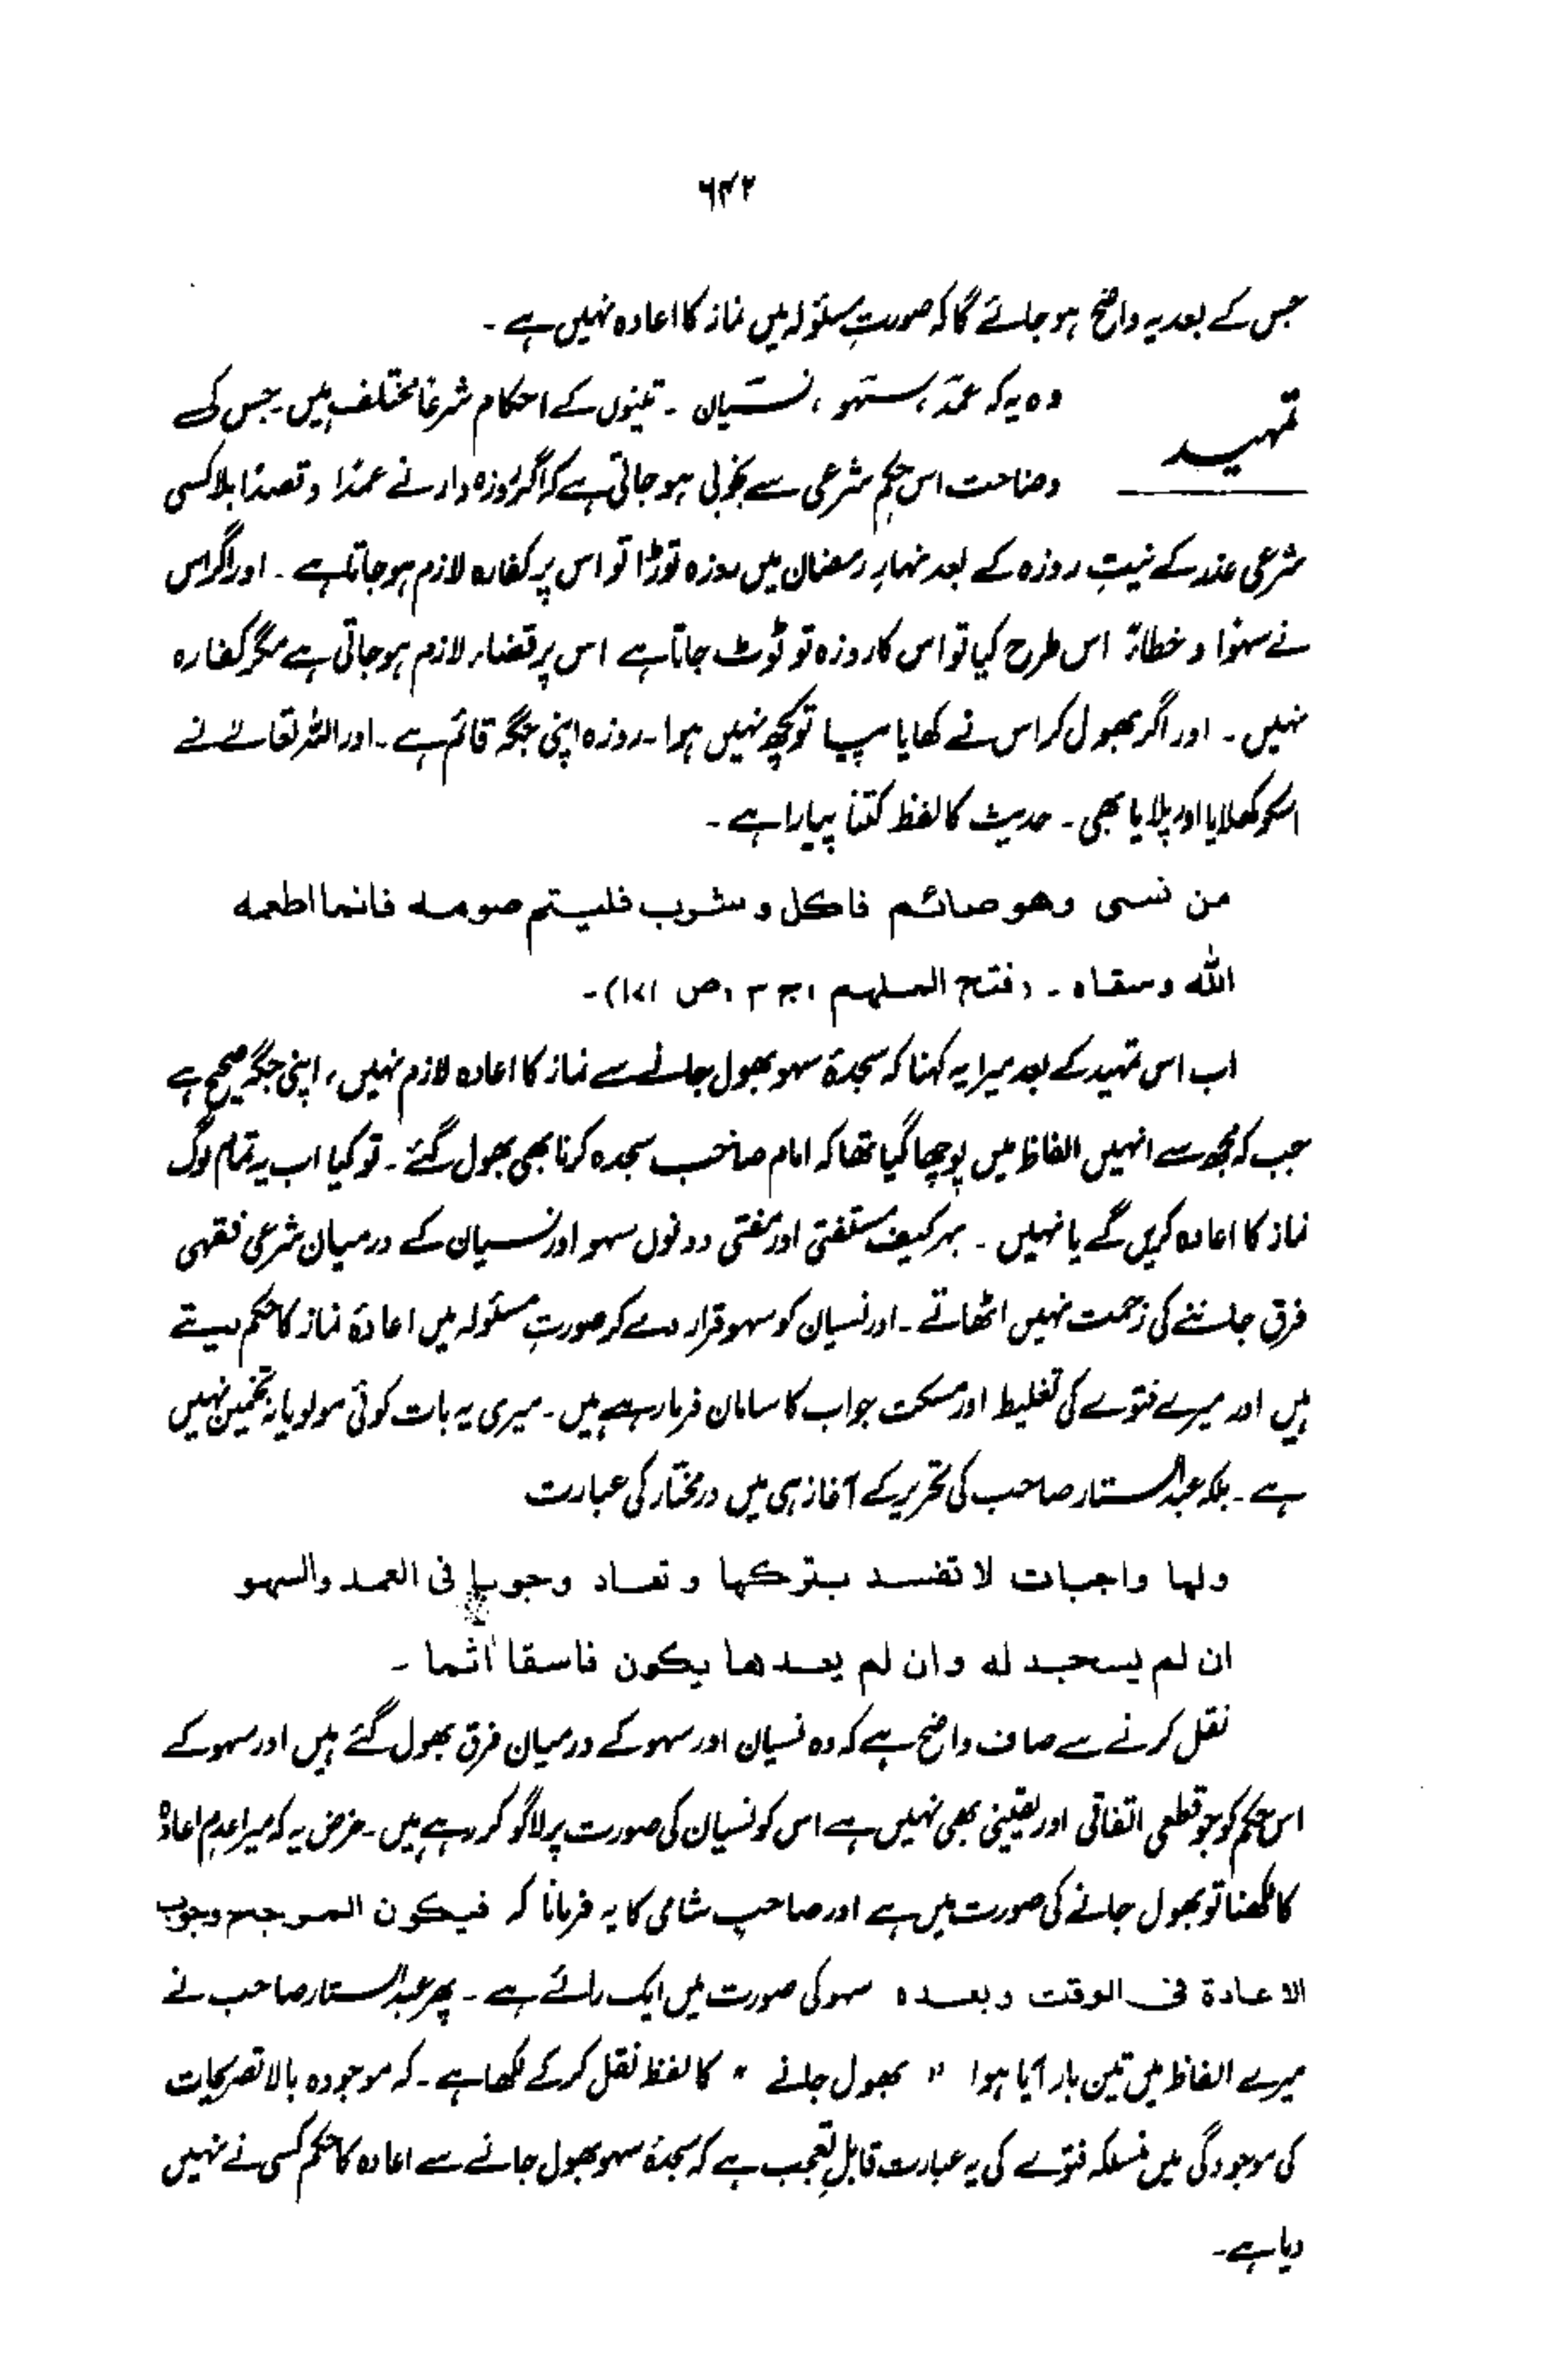 ۶۴۲
جس کے بعد یہ واضح ہو جائے گا کہ صورتِ مسئولہ میں نماز کا اعادہ نہیں ہے ۔
تمہید
وہ یہ کہ عمد، سہو، نسیان ۔ تینوں کے احکام شرعاً مختلف ہیں ۔ جس کی
وضاحت اس حکمِ شرعی سے بخوبی ہو جاتی ہے کہ اگر روزہ دار نے عمداً و قصداً بلا کسی
شرعی عذر کے نیتِ روزہ کے بعد نہارِ رمضان میں روزہ توڑا تو اس پر کفارہ لازم ہو جاتا ہے ۔ اور اگر اس
نے سہواً و خطاءً اس طرح کیا تو اس کا روزہ تو ٹوٹ جاتا ہے اس پر قضاء لازم ہو جاتی ہے مگر کفارہ
نہیں ۔ اور اگر بھول کر اس نے کھایا پیا تو کچھ نہیں ہوا ۔ روزہ اپنی جگہ قائم ہے ۔ اور اللہ تعالےٰ نے
اسکو کھلایا اور پلایا بھی ۔ حدیث کا لفظ کتنا پیارا ہے ۔
من نسی وھو صائم فاکل و شرب فلیتم صومہ فانما اطعمہ
اللہ وسقاہ ۔ (فتح الملہم، ج ۳، ص ۱۷۱) ۔
اب اس تمہید کے بعد میرا یہ کہنا کہ سجدۂ سہو بھول جانے سے نماز کا اعادہ لازم نہیں، اپنی جگہ صحیح ہے
جب کہ مجھ سے انہیں الفاظ میں پوچھا گیا تھا کہ امام صاحب سجدہ کرنا بھی بھول گئے ۔ تو کیا اب یہ تمام لوگ
نماز کا اعادہ کریں گے یا نہیں ۔ بہر کیف مستفتی اور مفتی دونوں سہو اور نسیان کے درمیان شرعی فقہی
فرق جاننے کی زحمت نہیں اٹھاتے ۔ اور نسیان کو سہو قرار دے کر صورتِ مسئولہ میں اعادۂ نماز کا حکم دیتے
ہیں اور میرے فتوے کی تغلیط اور مسکت جواب کا سامان فرما رہے ہیں ۔ میری یہ بات کوئی مولویانہ تخمین نہیں
ہے ۔ بلکہ عبدالستار صاحب کی تحریر کے آغاز ہی میں درمختار کی عبارت
ولہا واجبات لا تفسد بترکہا و تعاد وجوبا فی العمد والسہو
ان لم یسجد لہ وان لم یعدھا یکون فاسقا آثما ۔
نقل کرنے سے صاف واضح ہے کہ وہ نسیان اور سہو کے درمیان فرق بھول گئے ہیں اور سہو کے
اس حکم کو جو قطعی اتفاقی اور یقینی بھی نہیں ہے اس کو نسیان کی صورت پر لاگو کر رہے ہیں ۔ غرض یہ کہ میرا عدمِ اعادۂ
کا لکھنا تو بھول جانے کی صورت میں ہے اور صاحبِ شامی کا یہ فرمانا کہ فیکون المرجح وجوب
الاعادۃ فی الوقت وبعدہ سہو کی صورت میں ایک رائے ہے ۔ پھر عبدالستار صاحب نے
میرے الفاظ میں تین بار آیا ہوا " بھول جانے " کا لفظ نقل کر کے لکھا ہے ۔ کہ موجودہ بالا تصریحات
کی موجودگی میں منسلکہ فتوے کی یہ عبارت قابلِ تعجب ہے کہ سجدۂ سہو بھول جانے سے اعادہ کا حکم کسی نے نہیں
دیا ہے ۔